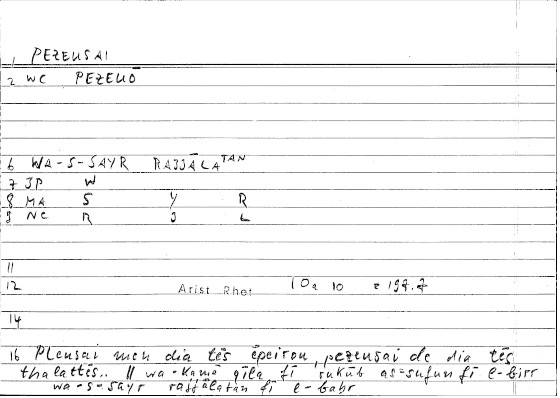 1 PEZEUSAI
2 WC PEZEUŌ
6 WA-S-SAYR RAJJĀLATAN
7 JP W
8 MA S Y R
9 NC R J L
11
12 Arist Rhet 10a 10 = 197.7
14
16 Pleusai men dia tēs ēpeirou, pezeusai de dia tēs
thalattēs.. // wa-kamā qīla fī rukūb as-sufun fī l-birr
wa-s-sayr rajjālatan fī l-baḥr